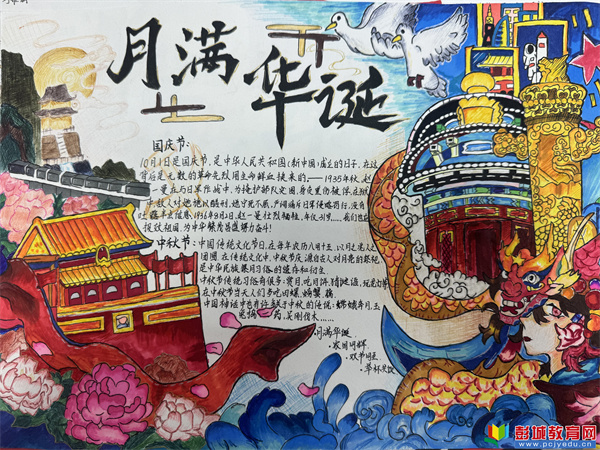 月满华诞
国庆节:
10月1日是国庆节,是中华人民共和国(新中国)成立的日子,在这
背后是无数的革命先烈用生命鲜血换来的,——1935年秋,赵
一曼在与日军作战中,为掩护部队突围,身负重伤被俘,在狱
中敌人对她施以酷刑,她宁死不屈,严词痛斥日军侵略罪行,没有
1936年8月2日,赵一曼壮烈牺牲,年仅31岁……我们也应
报效祖国,为中华
中秋节:中国传统文化节日,在每年农历八月十五,以月之圆人之
团圆,在传统文化中,中秋节庆源自古人对月亮的崇拜
是中华民族祭月习俗的遗存和衍生
中秋节传统习俗有很多:赏月,吃月饼,猜谜语,玩花灯等
在中秋节当天人们多吃田螺、螃蟹、藕
中国神话中也有许多关于中秋的传说:嫦娥奔月,玉
兔捣药,吴刚伐木……
月满华诞
家国同辉
双节同庆
举杯共饮
彭城教育网
www.pcjyedu.cn